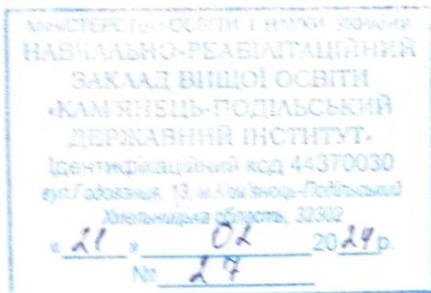 МІНІСТЕРСТВО ОСВІТИ І НАУКИ УКРАЇНИ
НАВЧАЛЬНО-РЕАБІЛІТАЦІЙНИЙ
ЗАКЛАД ВИЩОЇ ОСВІТИ
«КАМ'ЯНЕЦЬ-ПОДІЛЬСЬКИЙ
ДЕРЖАВНИЙ ІНСТИТУТ»
Ідентифікаційний код 44370030
вул. Годованця, 13, м. Кам'янець-Подільський
Хмельницька область, 32302
« 21 » 02 2024 р.
№ 27